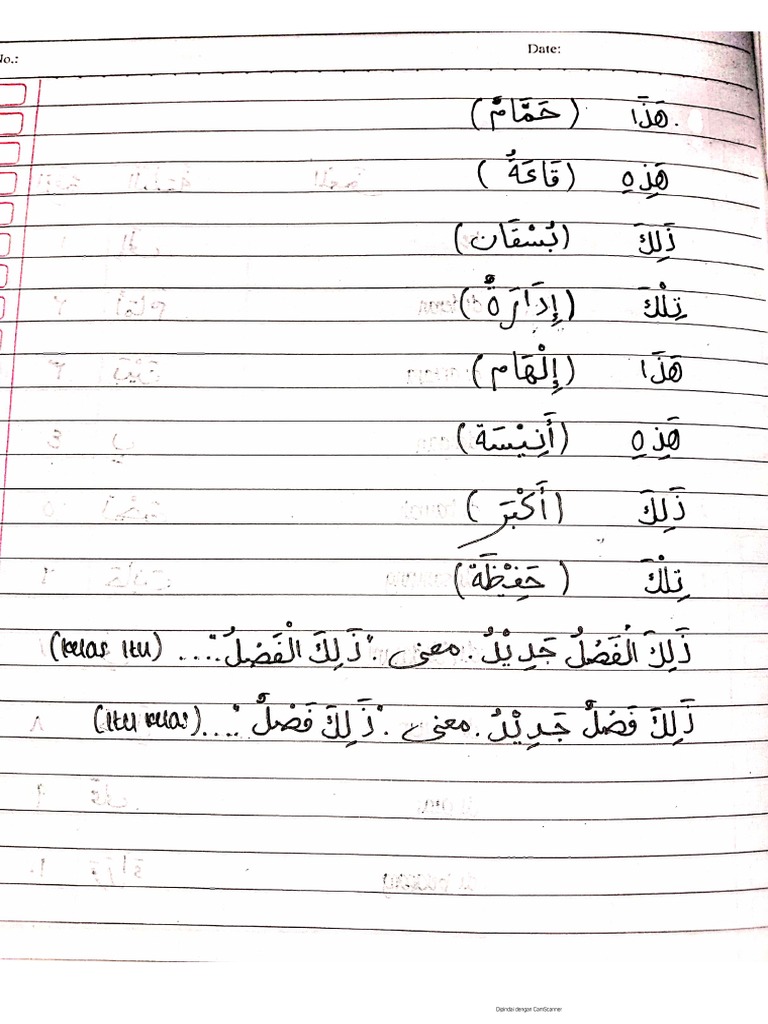 No.: Date:
هَذَا. (حَمَّامٌ)
هَذِهِ (قَاعَةٌ)
ذَلِكَ (بُسْقَان)
تِلْكَ (إِدَارَةٌ)
هَذَا (إِلْهَام)
هَذِهِ (أَنِيْسَة)
ذَلِكَ (أَكْبَر)
تِلْكَ (حَفِيْظَة)
ذَلِكَ الْفَصْلُ جَدِيْدٌ. معنى "ذَلِكَ الْفَصْلُ".... (kelas itu)
ذَلِكَ فَصْلٌ جَدِيْدٌ. معنى "ذَلِكَ فَصْلٌ".... (itu kelas)
Dipindai dengan CamScanner